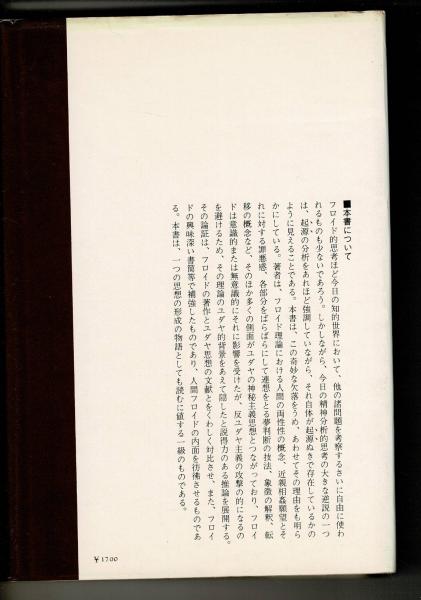 ■本書について
フロイド的思考ほど今日の知的世界において、他の諸問題を考察するさいに自由に使わ
れるものも少ないであろう。しかしながら、今日の精神分析的思考の大きな逆説の一つ
は、起源の分析をあれほど強調していながら、それ自体が起源ぬきで存在しているかの
ように見えることである。本書は、この奇妙な欠落をうめ、あわせてその理由をも明ら
かにしている。著者は、フロイド理論における人間の両性性の概念、近親相姦願望とそ
れに対する罪悪感、各部分をばらばらにして連想をとる夢判断の技法、象徴の解釈、転
移の概念など、そのほか多くの側面がユダヤの神秘主義思想とつながっており、フロイ
ドは意識的または無意識的にそれに影響を受けたが、反ユダヤ主義の攻撃の的になるの
を避けるため、その理論のユダヤ的背景をあえて隠したと説得力のある推論を展開する。
その論証は、フロイドの著作とユダヤ思想の文献とをくわしく対比させ、また、フロイ
ドの興味深い書簡等で補強したものであり、人間フロイドの内面を彷彿させるものであ
る。本書は、一つの思想の形成の物語としても読むに値する一級のものである。
￥1700